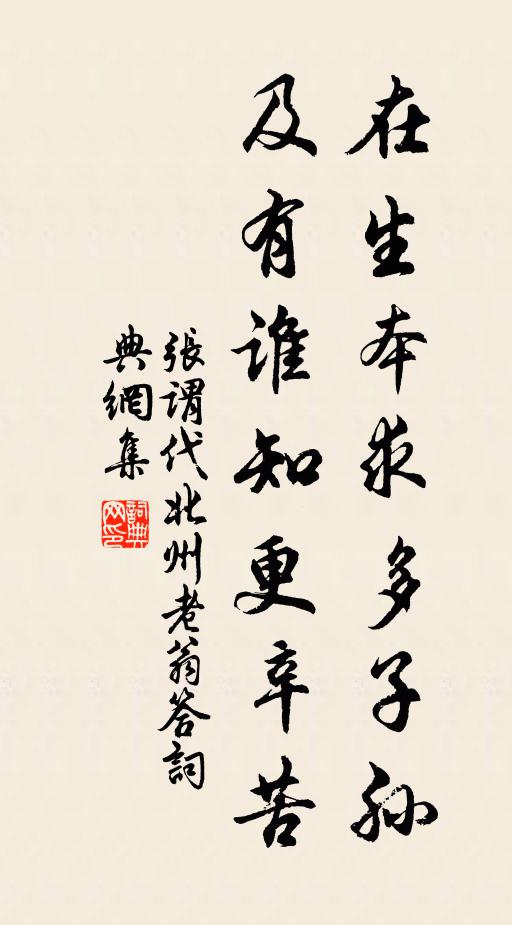 在生本求多子孙
及有谁知更辛苦
張謂代北州老翁答詞
典網集
詞典网印